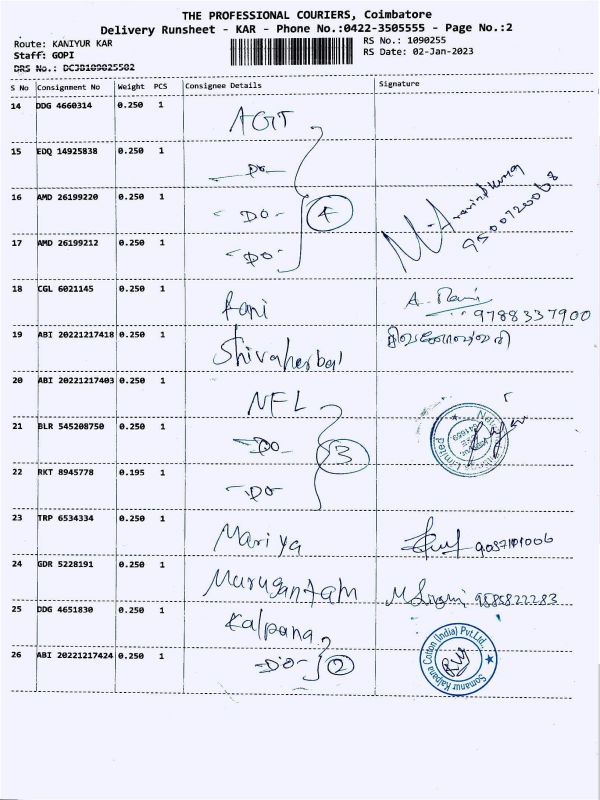 THE PROFESSIONAL COURIERS, Coimbatore
Delivery Runsheet - KAR - Phone No.:0422-3505555 - Page No.:2
Route: KANIYUR KAR
RS No.: 1090255
Staff: GOPI
RS Date: 02-Jan-2023
DRS No.: DCJB109025502
S No Consignment No Weight PCS Consignee Details Signature
14 DDG 4660314 0.250 1 AGT
15 EDQ 14925838 0.250 1 -DO-
16 AMD 26199220 0.250 1 -DO- 4 M. Aravindkumar
9500720068
17 AMD 26199212 0.250 1 -DO-
18 CGL 6021145 0.250 1 Rani A. Mani
9788337900
19 ABI 20221217418 0.250 1 Shivaherbal
20 ABI 20221217403 0.250 1 NFL
21 BLR 545208750 0.250 1 -DO- 3 Limited
22 RKT 8945778 0.195 1 -DO-
23 TRP 6534334 0.250 1 Mariya
24 GDR 5228191 0.250 1 Murugantham 9885822283
25 DDG 4651830 0.250 1 Kalpana
26 ABI 20221217424 0.250 1 -DO- 2 Somanur Kalpana Cotton (India) Pvt.Ltd.,